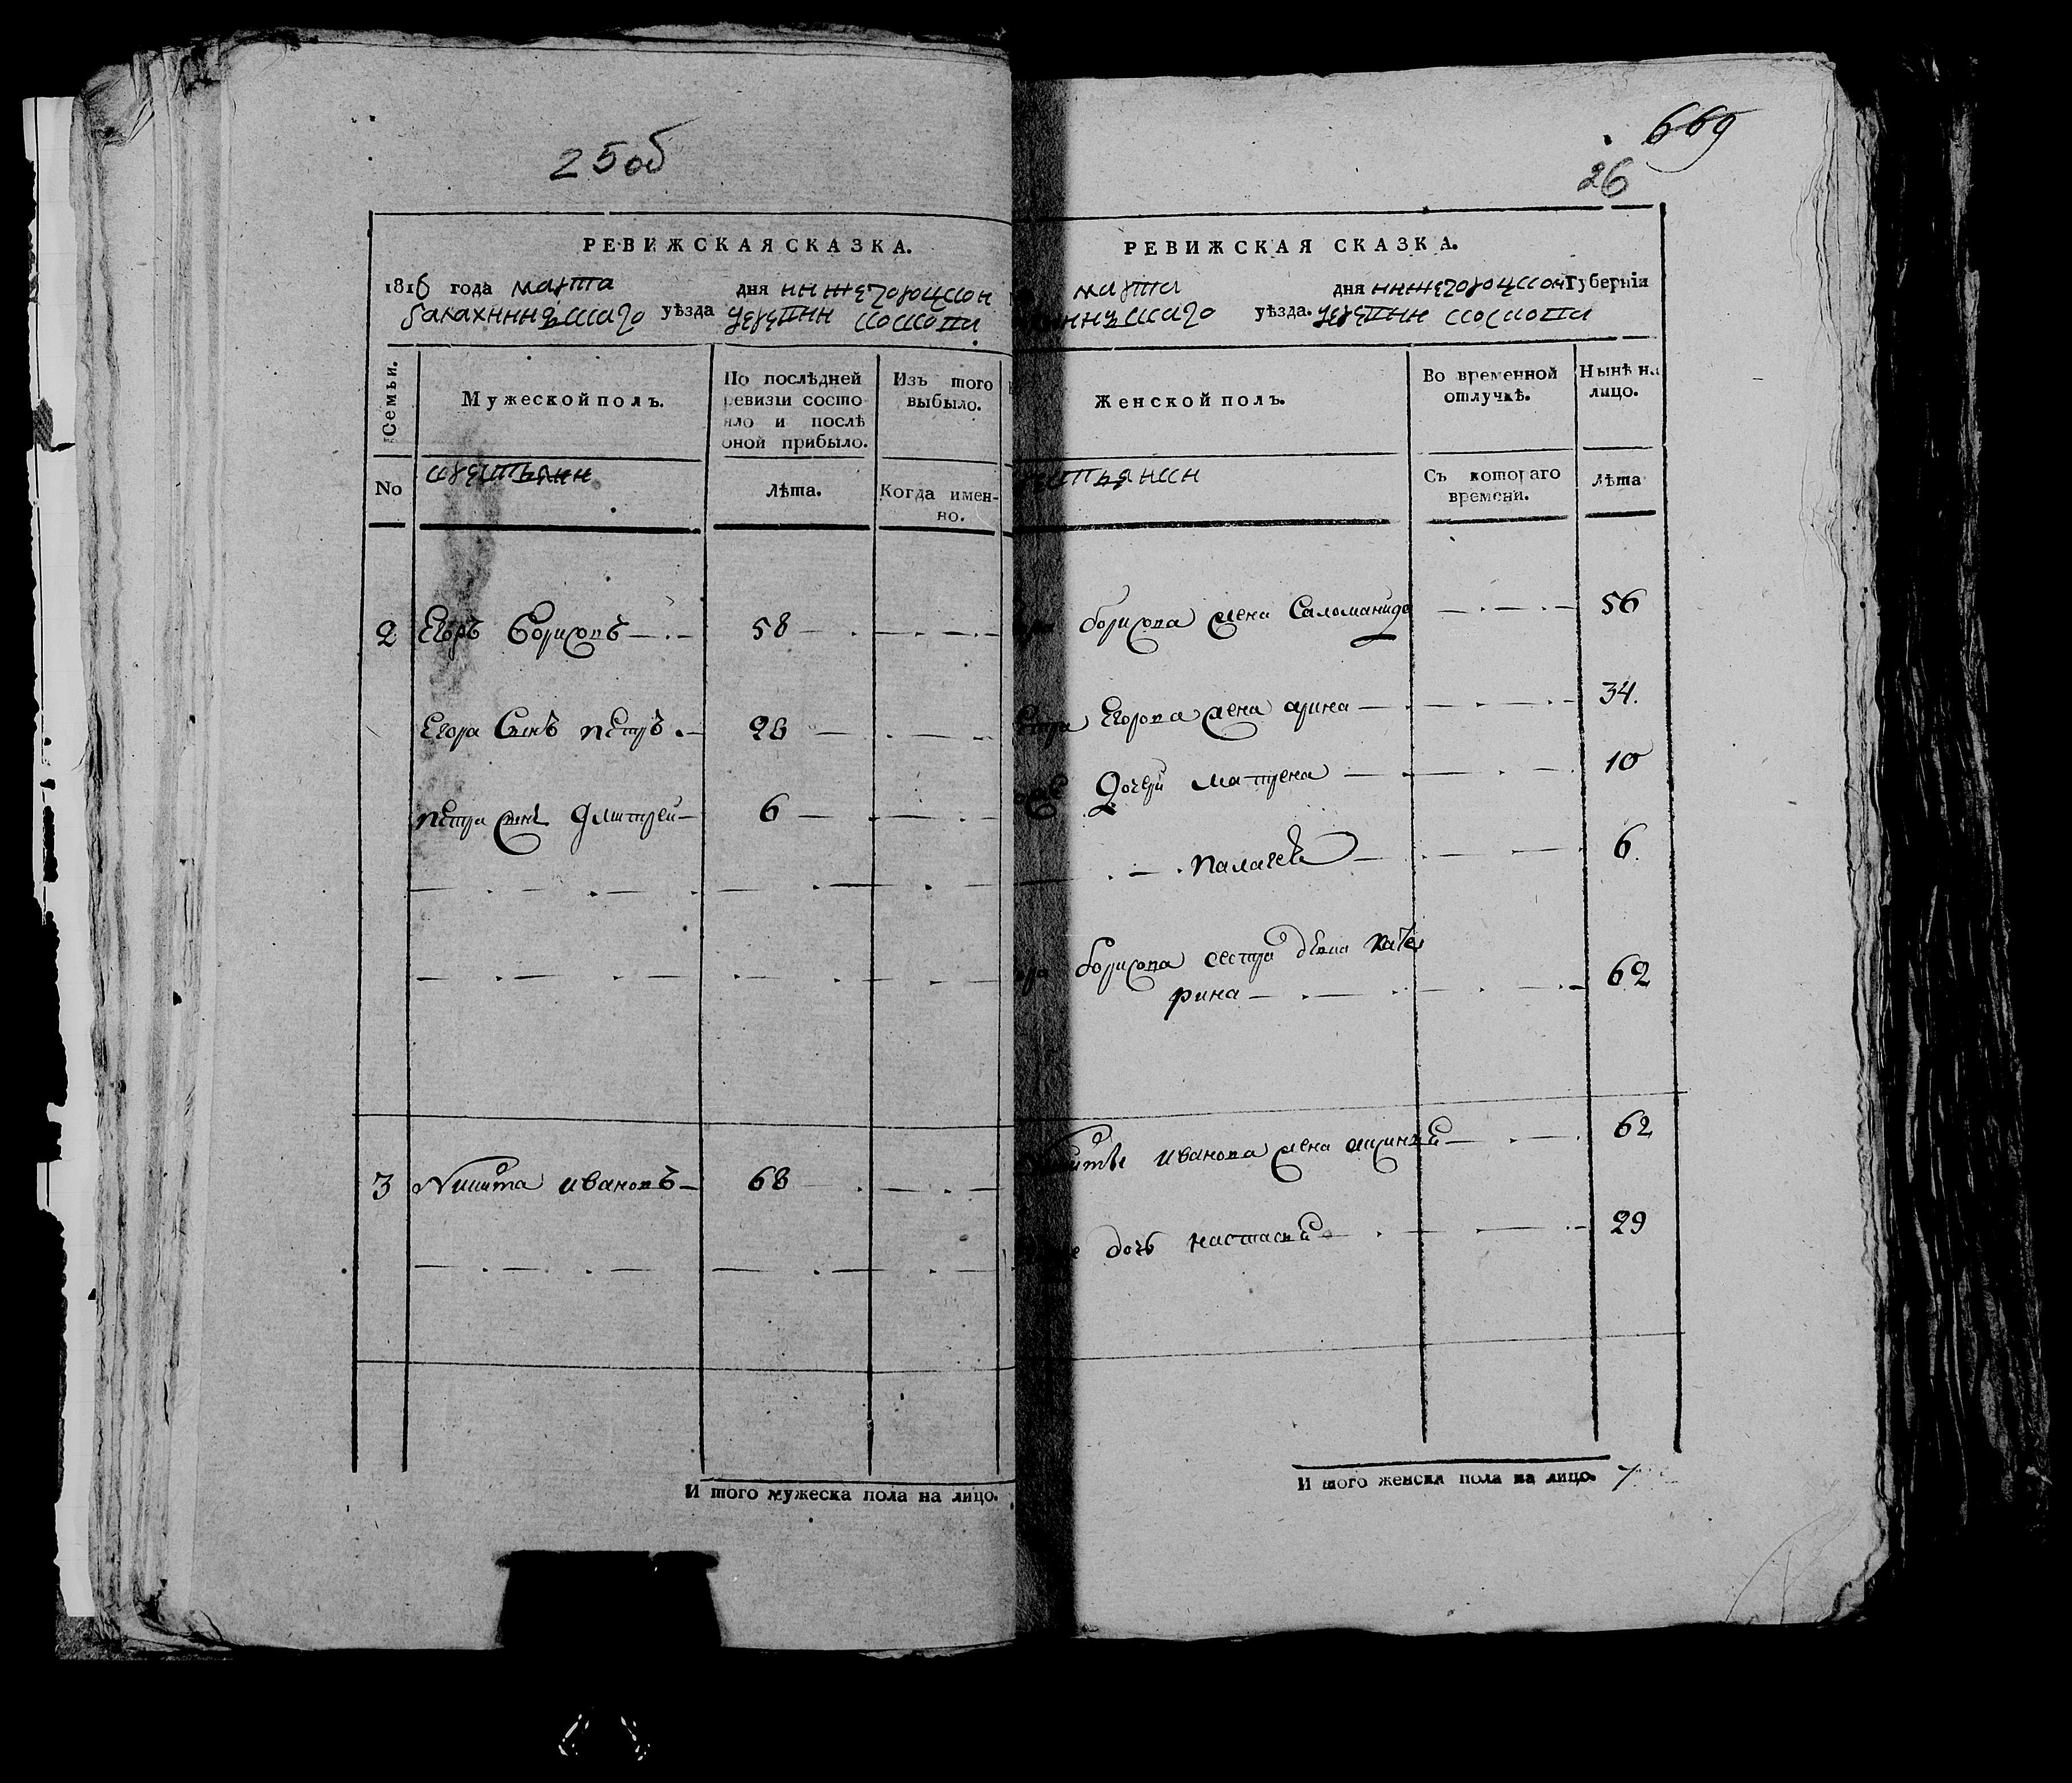 25об
РЕВИЖСКАЯ СКАЗКА.
1816 года марта дня нижегороцкой
балахнинъскаго уѣзда
Семьи.
Мужеской полъ.
По послѣдней ревизіи состояло и послѣ оной прибыло.
Изъ того выбыло.
No
крестьяни
лѣта.
Когда именно.
2 Егоръ Борисовъ 58
Егора Сынъ петръ 28
петра Сынъ Дмитрей 6
3 Никита ивановъ 68
И того мужеска пола на лицо.
669
26
РЕВИЖСКАЯ СКАЗКА.
марта дня нижегороцкой Губерніи
уѣзда.
Женской полъ.
Во временной отлучкѣ.
Нынѣ на лицо.
Съ котораго времени.
лѣта
борисова жена Саломанида 56
Егорова жена арина 34.
Дочери матрена 10
палагея 6.
борисова сестра девка катерина 62
иванова жена 62
дочь настасья 29
И того женска пола на лицо. 7